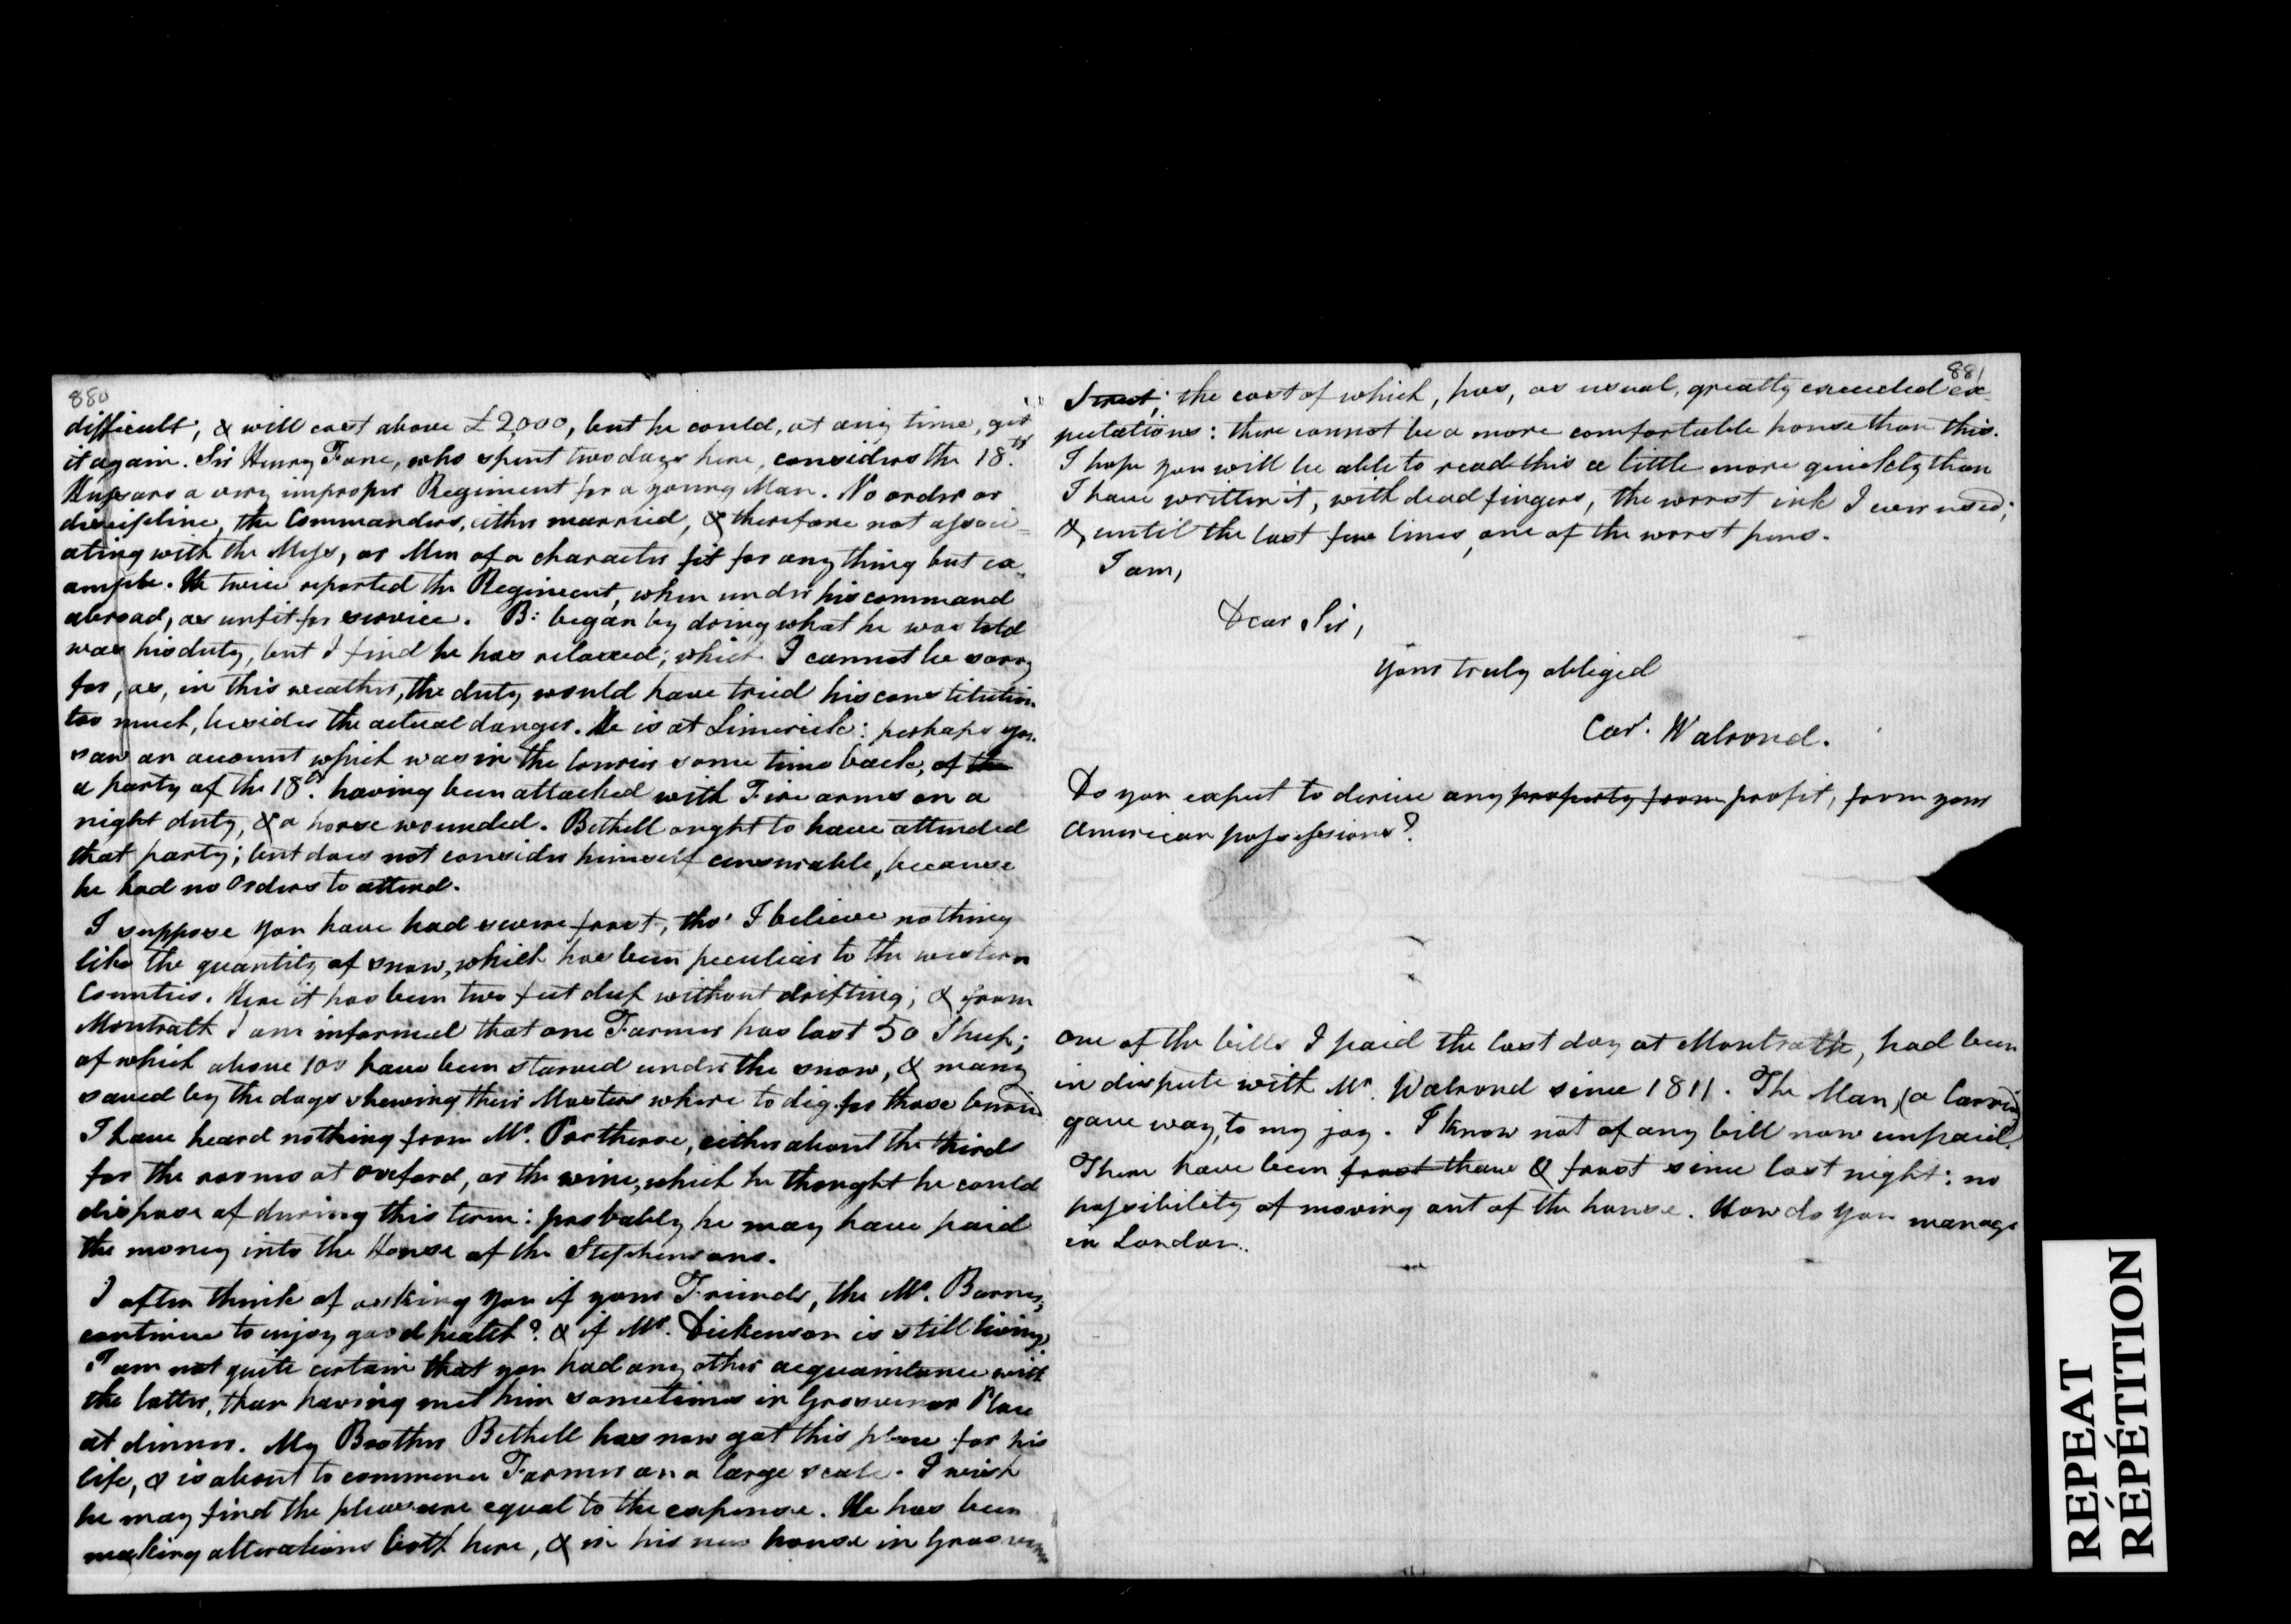 880
difficult; & will cost above £2,000, but he could, at any time, get
it again. Sir Henry Fane, who spent two days here, considers the 18th
Hussars a very improper Regiment for a young Man. No order or
discipline, the Commanders, either married, & therefore not associ=
ating with the Mess, or Men of a character fit for any thing but ex=
ample. He twice reported the Regiment, when under his command
abroad, as unfit for service. B: began by doing what he was told
was his duty, but I find he has relaxed; which I cannot be sorry
for, as, in this weather, the duty would have tried his constitution
too much, besides the actual danger. He is at Limerick: perhaps you
saw an account which was in the Courier some time back, of the
a party of the 18th having been attacked with Fire arms on a
night duty, & a horse wounded. Bethell ought to have attended
that party; but does not consider himself censurable, because
he had no Orders to attend.
I suppose you have had severe frost, tho' I believe nothing
like the quantity of snow, which has been peculiar to the western
Counties. Here it has been two feet deep without drifting; & from
Montrath I am informed that one Farmer has lost 50 Sheep;
of which above 100 have been starved under the snow, & many
saved by the dogs shewing their Masters where to dig for those buried
I have heard nothing from Mr. Portherse, either about the thirds
for the rooms at Oxford, or the wine, which he thought he could
dispose of during this term: probably he may have paid
the money into the House of the Stephensons.
I often think of asking you if your Friends, the Mr. Barnes,
continue to enjoy good health? & if Mr. Dickenson is still living.
I am not quite certain that you had any other acquaintance with
the latter, than having met him sometimes in Grosvenor Place
at dinner. My Brother Bethell has now got this place for his
life, & is about to commence Farmer on a large scale. I wish
he may find the pleasure equal to the expense. He has been
making alterations both here, & in his new house in Grosvenor
881
Street; the cost of which, has, as usual, greatly exceeded ex=
pectations: there cannot be a more comfortable house than this.
I hope you will be able to read this a little more quickly than
I have written it, with dead fingers, the worst ink I ever used;
&, until the last few lines, one of the worst pens.
I am,
Dear Sir,
Your truly obliged
Car. Walrond.
Do you expect to derive any property from profit, from your
American possessions?
One of the bills I paid the last day at Montrath, had been
in dispute with Mr. Walrond since 1811. The Man, (a Carrier)
gave way, to my joy. I know not of any bill now unpaid.
There have been frost thaw & frost since last night: no
possibility of moving out of the house. How do you manage
in London.
REPEAT
RÉPÉTITION